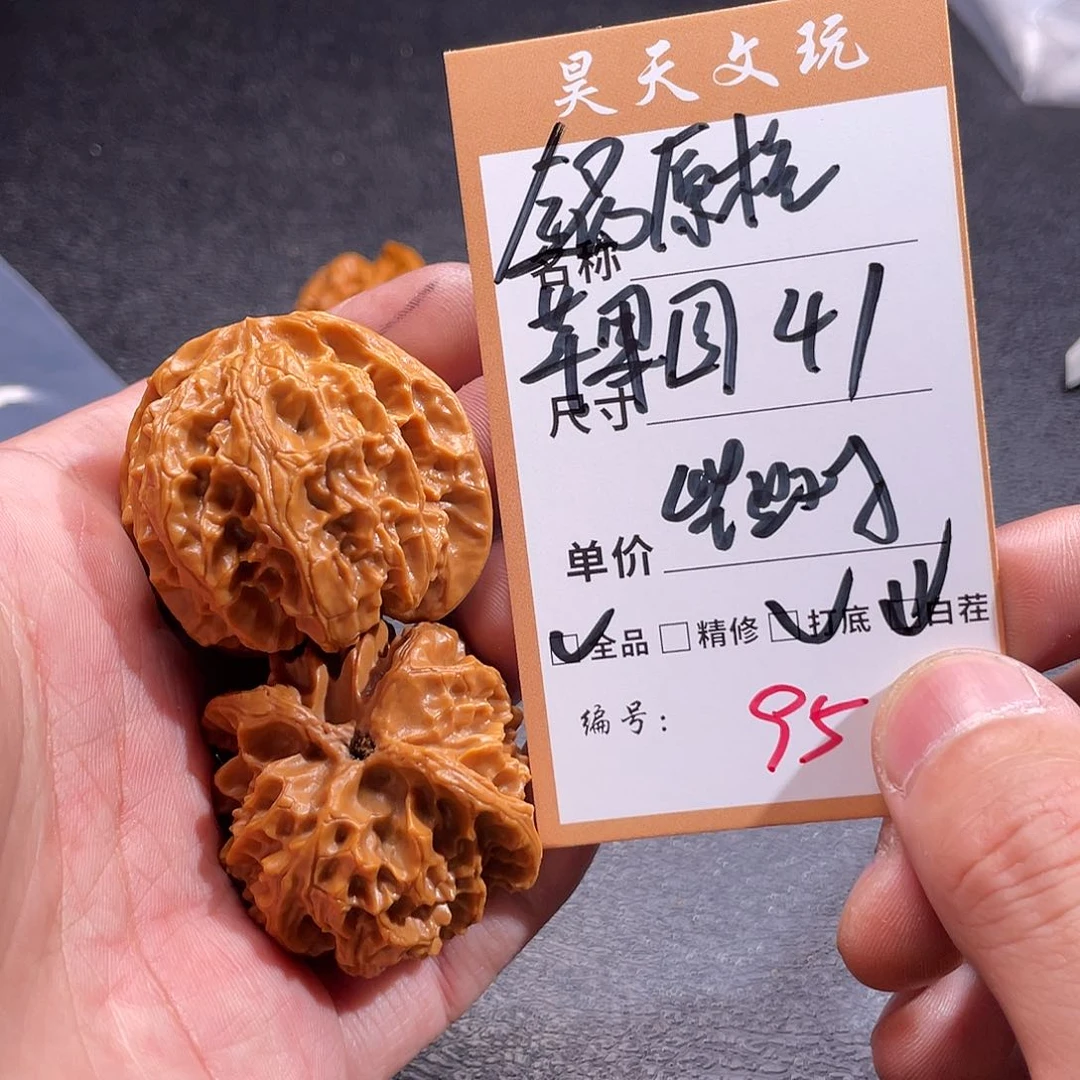 昊天文玩
锅原核
名称
苹果园 41
尺寸
单价
全品 精修 打底 白茬
编号： 95